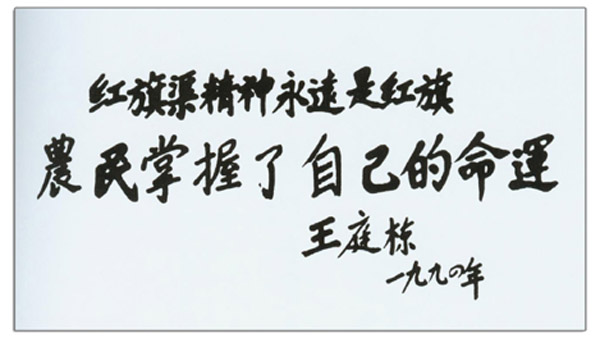 红旗渠精神永遠是红旗
農民掌握了自己的命運
王庭栋
一九九〇年